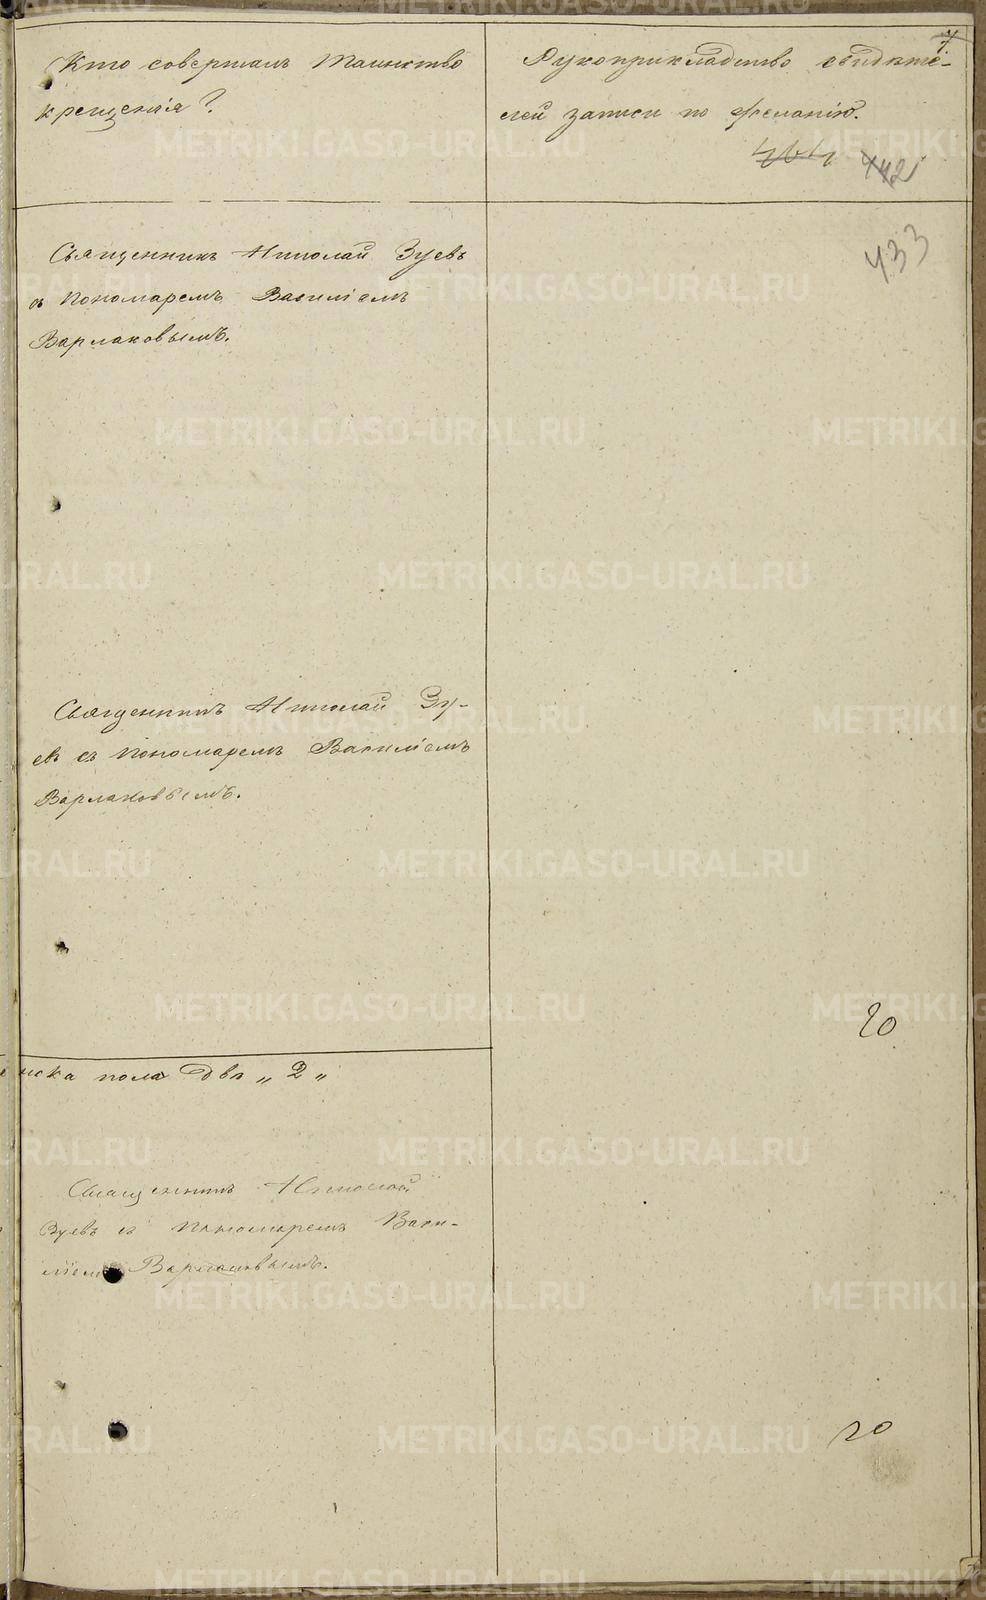 7
Кто совершалъ таинство
крещенія?
Рукоприкладство свидѣте-
лей записи по желанію.
442
433
Священникъ Николай Зуевъ
съ Пономаремъ Василіемъ
Варлаковымъ.
Священникъ Николай Зу-
евъ съ Пономаремъ Василіемъ
Варлаковымъ.
20
нска пола два „ 2 „
Священникъ Николай
Зуевъ съ Пономаремъ Васи-
ліемъ Варлаковымъ.
20
METRIKI.GASO-URAL.RU